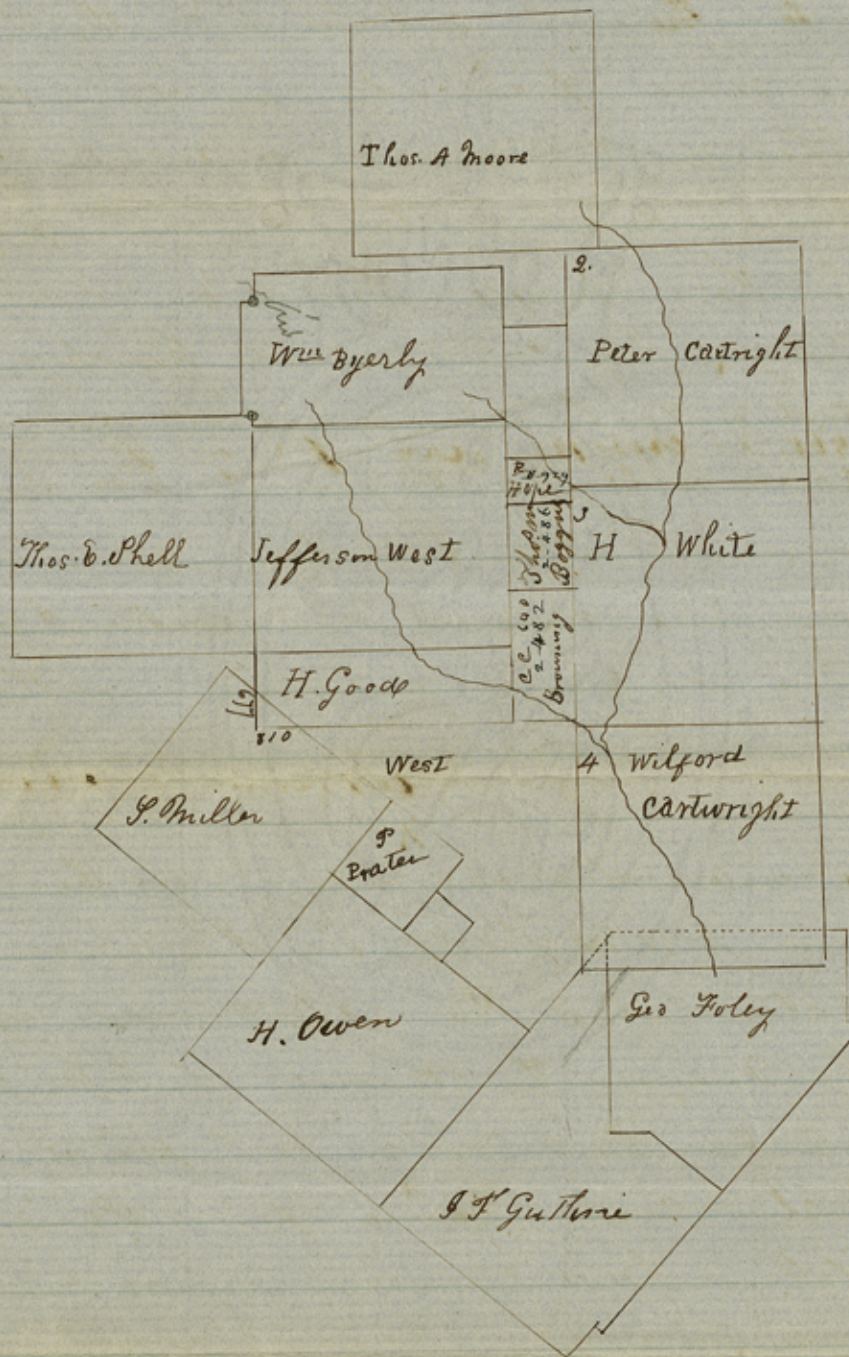 Thos. A Moore
2.
Wm Byerly
Peter Cartright
R
Hope
3
Thos. E. Shell
Jefferson West
Thos M
2-486
Boggus
H White
C C 640
2-482
Browning
H. Good
677
810
West
4 Wilford
Cartwright
S. Miller
P
Prater
H. Owen
Geo Foley
J F Guthrie